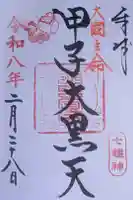 奉拝
大国主命
甲子大黒天
七福神
令和八年
二月二十八日